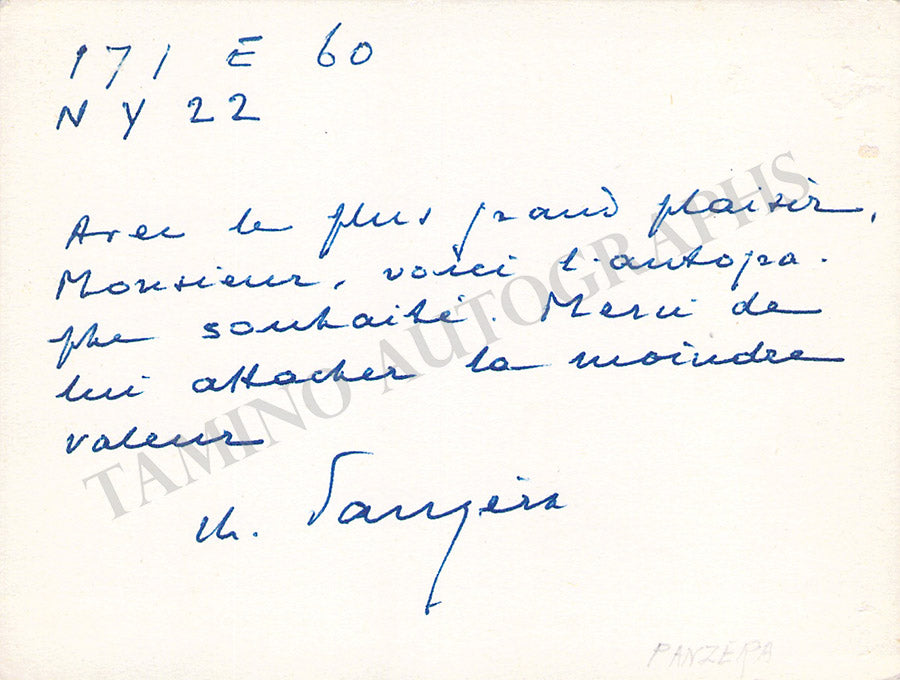 171 E 60
N Y 22
Avec le plus grand plaisir,
Monsieur, voici l'autogra-
phe souhaité. Merci de
lui attacher la moindre
valeur
Ch. Panzéra
PANZERA
TAMINO AUTOGRAPHS